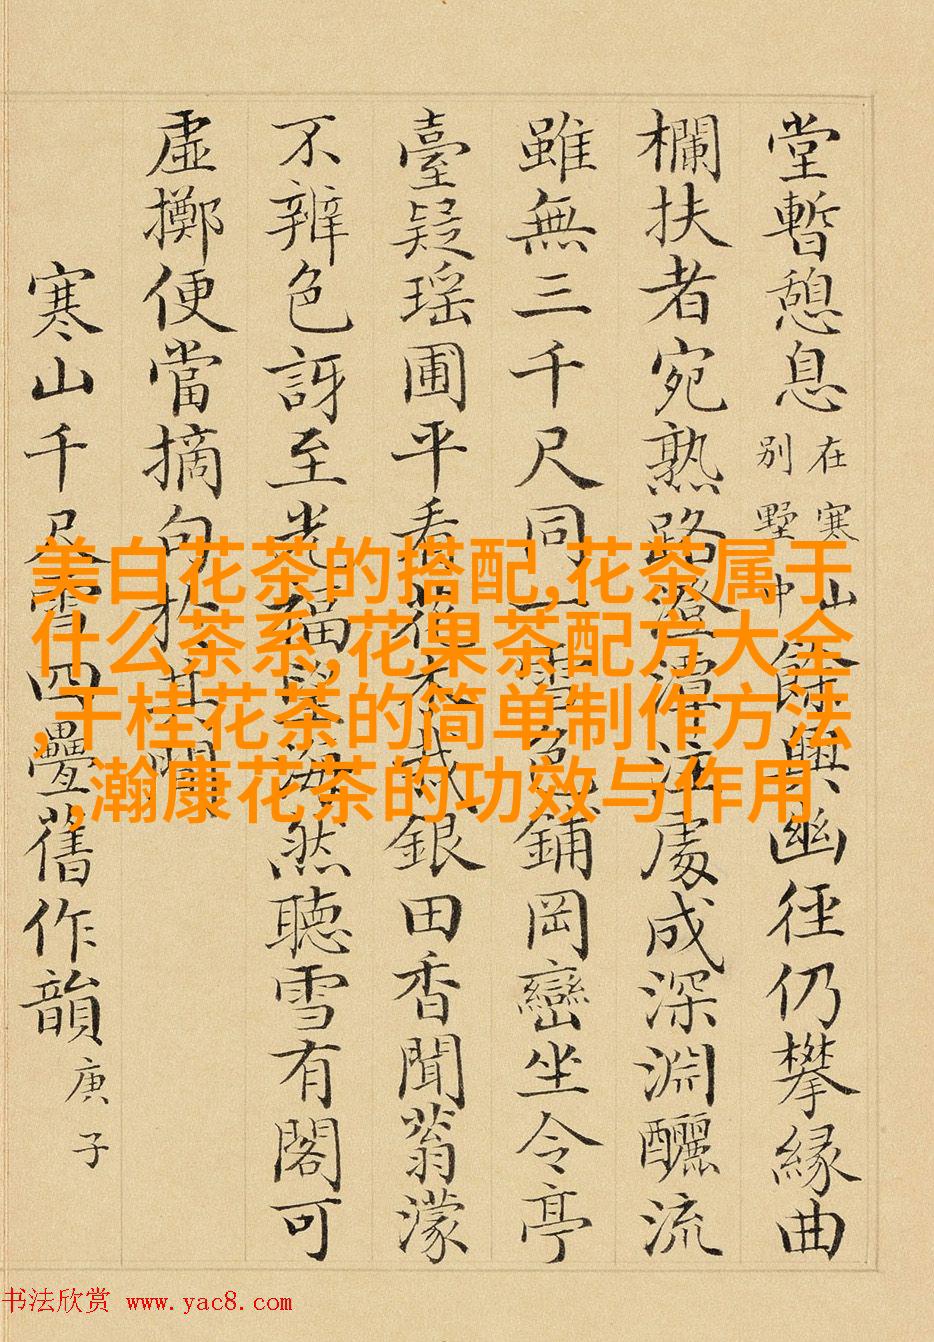 堂暫憩息在寒山別墅中餘興幽徑仍攀緣曲
欄扶者宛熟路澄潭注處成深淵釃流
雖無三千尺同一雪色鋪岡巒坐令亭
臺疑瑤圃平看裁銀田香聞蓊濛
不辨色訝至光福然聽雪有閣可
虛擲便當摘句於其間
寒山千尺雪四疊舊作韻庚子
美白花茶的搭配,花茶属于
什么茶系,花果茶配方大全
,干桂花茶的简单制作方法
,瀚康花茶的功效与作用
书法欣赏 www.yac8.com